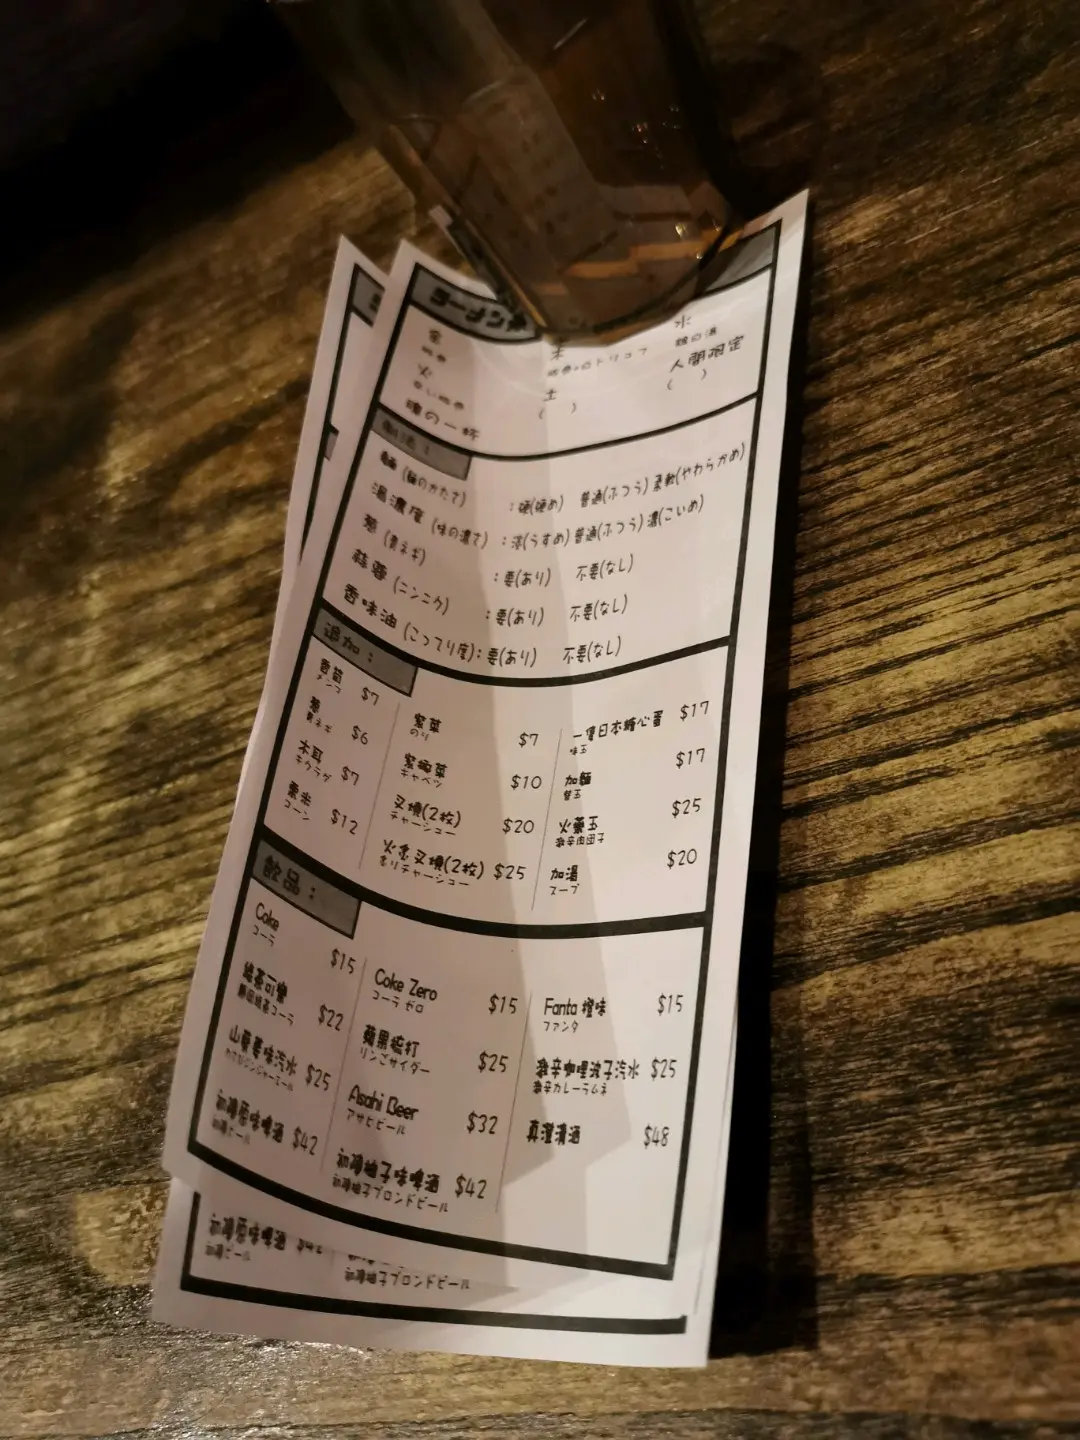 ラーメン
木
水
火
土
人間限定
( )
( )
魂の一杯
麵 (麺のかたさ) : 硬(硬め) 普通(ふつう) 柔軟(やわらかめ)
湯濃度 (味の濃さ) : 淡(うすめ) 普通(ふつう) 濃(こいめ)
葱 (青ネギ) : 要(あり) 不要(なし)
蒜蓉 (ニンニク) : 要(あり) 不要(なし)
香味油 (こってり度) : 要(あり) 不要(なし)
追加 :
$7
葱 $6
青ネギ
木耳 $7
キクラゲ
粟米 $12
コーン
紫菜 $7
のり
椰菜 $10
キャベツ
叉燒(2枚) $20
チャーシュー
火炙叉燒(2枚) $25
炙りチャーシュー
一隻日本糖心蛋 $17
味玉
加麵 $17
替玉
火藥玉 $25
激辛肉団子
加湯 $20
スープ
飲品 :
Coke $15
コーラ
綠茶可樂 $22
山葵薑味汽水 $25
$42
Coke Zero $15
コーラ ゼロ
蘋果梳打 $25
リンゴサイダー
Asahi Beer $32
アサヒビール
柚子味啤酒 $42
柚子ブロンドビール
Fanta 橙味 $15
ファンタ
激辛咖哩波子汽水 $25
激辛カレーラムネ
真澄清酒 $48
$42
柚子ブロンドビール